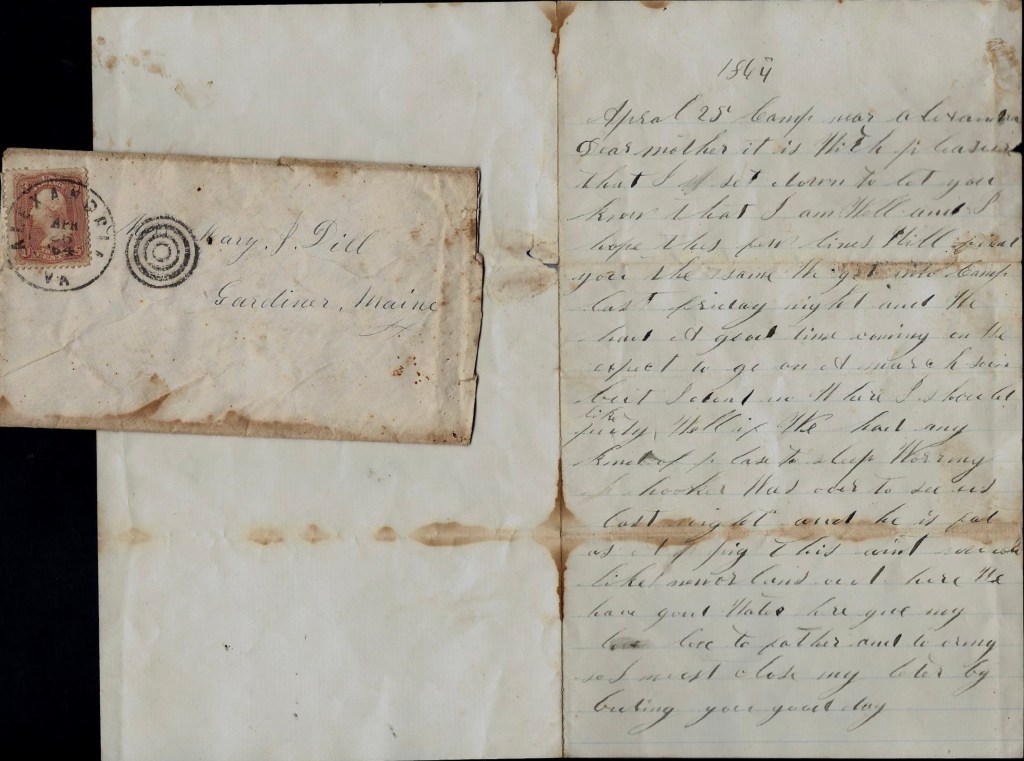 ALEXANDRIA
APR
25
VA
Mary J. Dill
Gardiner, Maine
1864
Apral 25 Camp near alexandra
Dear mother it is With pleasure
that I set down to let you
know that I am Well and I
hope thes few lines Will
you the same We got into Camp
last friday night and We
had A good time coming on We
expect to go on A march soon
but I dont no Where I should
like
purty Well if We had any
kind of plase to sleep Worring
hooker Was over to see us
last night and he is fat
as A pig this aint
like new or lains out here We
have good Water here give my
love to father and to
I must close my leter by
biding you good day